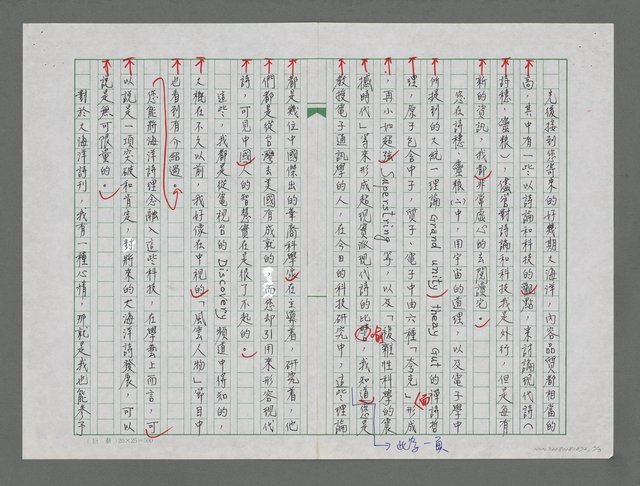 先後接到您寄來的好幾期大海洋，內容品質都相當的
高，其中有一些以詩論和科技的觀點，來討論現代詩（
詩穗、蠻粮），儘管對詩論和科技我是外行，但是每有
新的資訊，我都非常虛心的去閱讀完。
您在詩穗、蠻粮（二）中，用宇宙的道理，以及電子學中
所提到的大統一理論 Grand unity theory Gut 的譚詩哲
理，原子包含中子，質子、電子中由六種「夸克」形成
，再小如超弦 Superstring 等，以及「複雜性科學的震
撼時代」等來形成超現實派現代詩的比喻，我知道您是
教授電子通訊學的人，在今日的科技研究中，這些理論
都是幾位中國傑出的華裔科學家在主導着，研究着，他
們都是從台灣去美國有成就的，而您却引用來形容現代
詩，可見中國人的智慧實在是很了不起的。
這些，我都是從電視台的 Discovery 頻道中得知的，
大概在不久以前，我好像在中視的「風雲人物」節目中
也看到有介紹過。
您能將海洋詩理念融入這些科技，在學術上而言，可
以說是一項突破和肯定，對將來的大海洋詩發展，可以
說是無可限量的。
對於大海洋詩刊，我有一種心情，那就是我也能参予
此字一頁
20×25=500